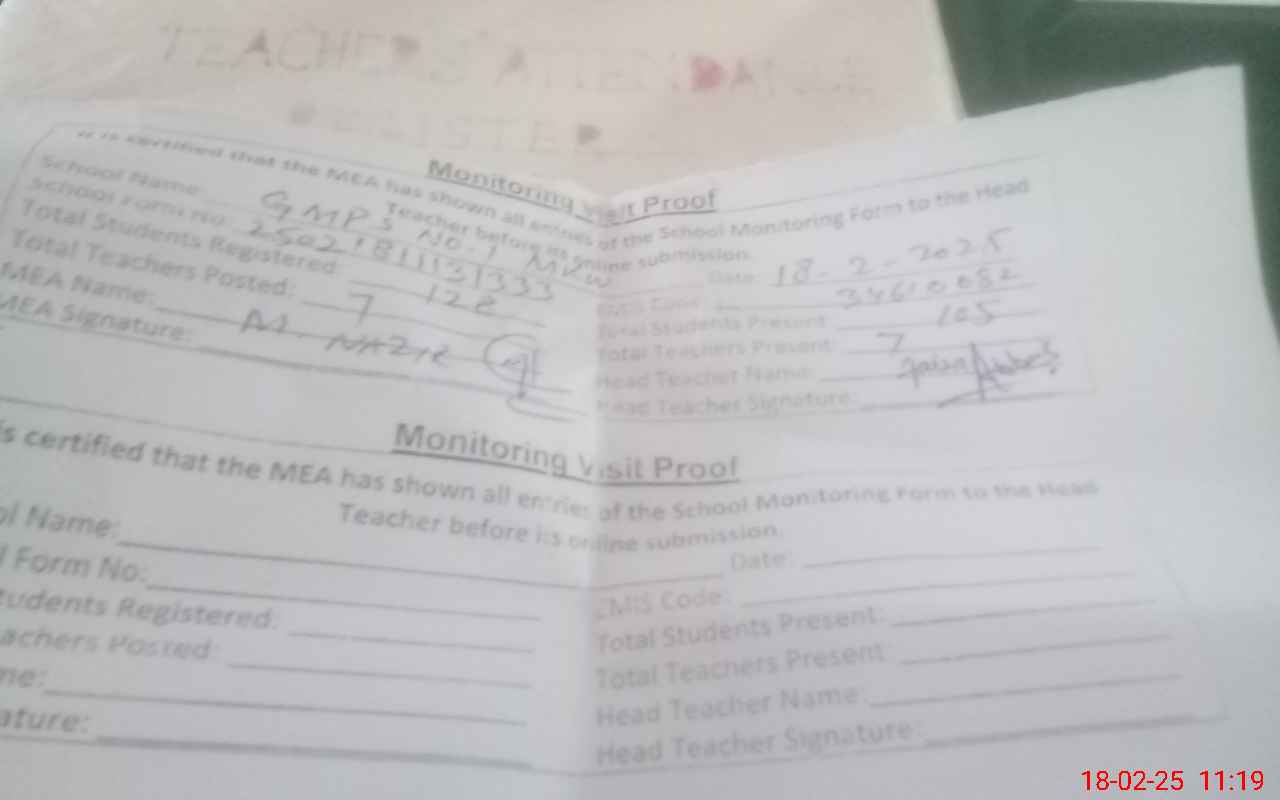 TEACHER'S ATTENDANCE
REGISTER
Monitoring Visit Proof
It is certified that the MEA has shown all entries of the School Monitoring Form to the Head
Teacher before its online submission.
School Name: GMPS NO.1 Date: 18-2-2025
School Form No: EMIS Code: 34610082
Total Students Registered: 128 Total Students Present: 105
Total Teachers Posted: 7 Total Teachers Present: 7
MEA Name: M. NAZIR Head Teacher Name:
MEA Signature: Head Teacher Signature:
Monitoring Visit Proof
is certified that the MEA has shown all entries of the School Monitoring Form to the Head
Teacher before its online submission.
ol Name: Date:
l Form No: EMIS Code:
tudents Registered: Total Students Present:
achers Posted: Total Teachers Present:
me: Head Teacher Name:
ature: Head Teacher Signature:
18-02-25 11:19